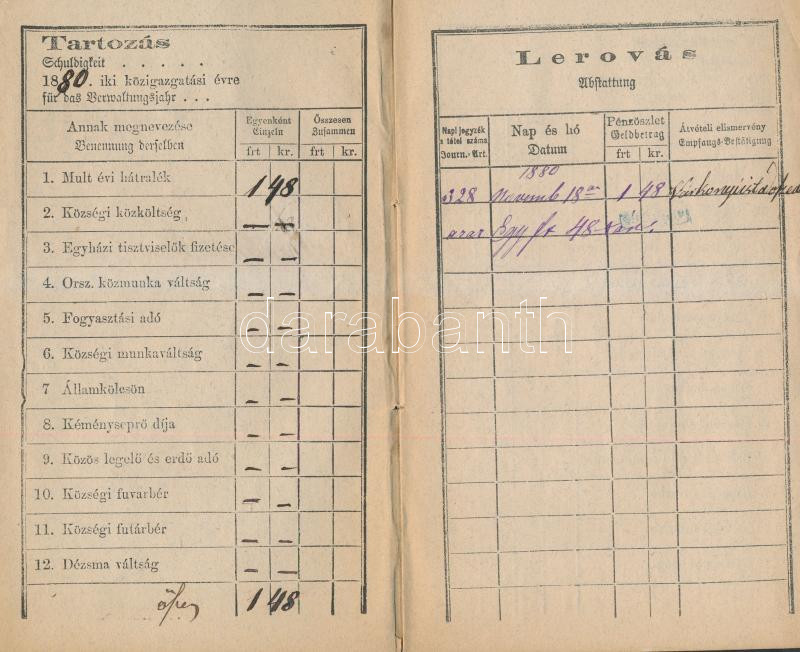 Tartozás
Schuldigkeit . . . . .
1880. iki közigazgatási évre
für das Verwaltungsjahr . . .
Annak megnevezése
Benennung derselben
Egyenként
Einzeln
Összesen
Zusammen
frt kr. frt kr.
1. Mult évi hátralék 1 48
2. Községi közköltség — —
3. Egyházi tisztviselők fizetése — —
4. Orsz. közmunka váltság — —
5. Fogyasztási adó — —
6. Községi munkaváltság — —
7 Államkölcsön — —
8. Kéményseprő díja — —
9. Közös legelő és erdő adó — —
10. Községi fuvarbér — —
11. Községi futárbér — —
12. Dézsma váltság — —
1 48
Lerovás
Abstattung
Napi jegyzék
tétel száma
Journ.-Art.
Nap és hó
Datum
Pénzöszlet
Geldbetrag
frt kr.
Átvételi elismervény
Empfangs-Bestätigung
1880
328 Novemb 18 1 48
azaz Egy ft 48
darabanth